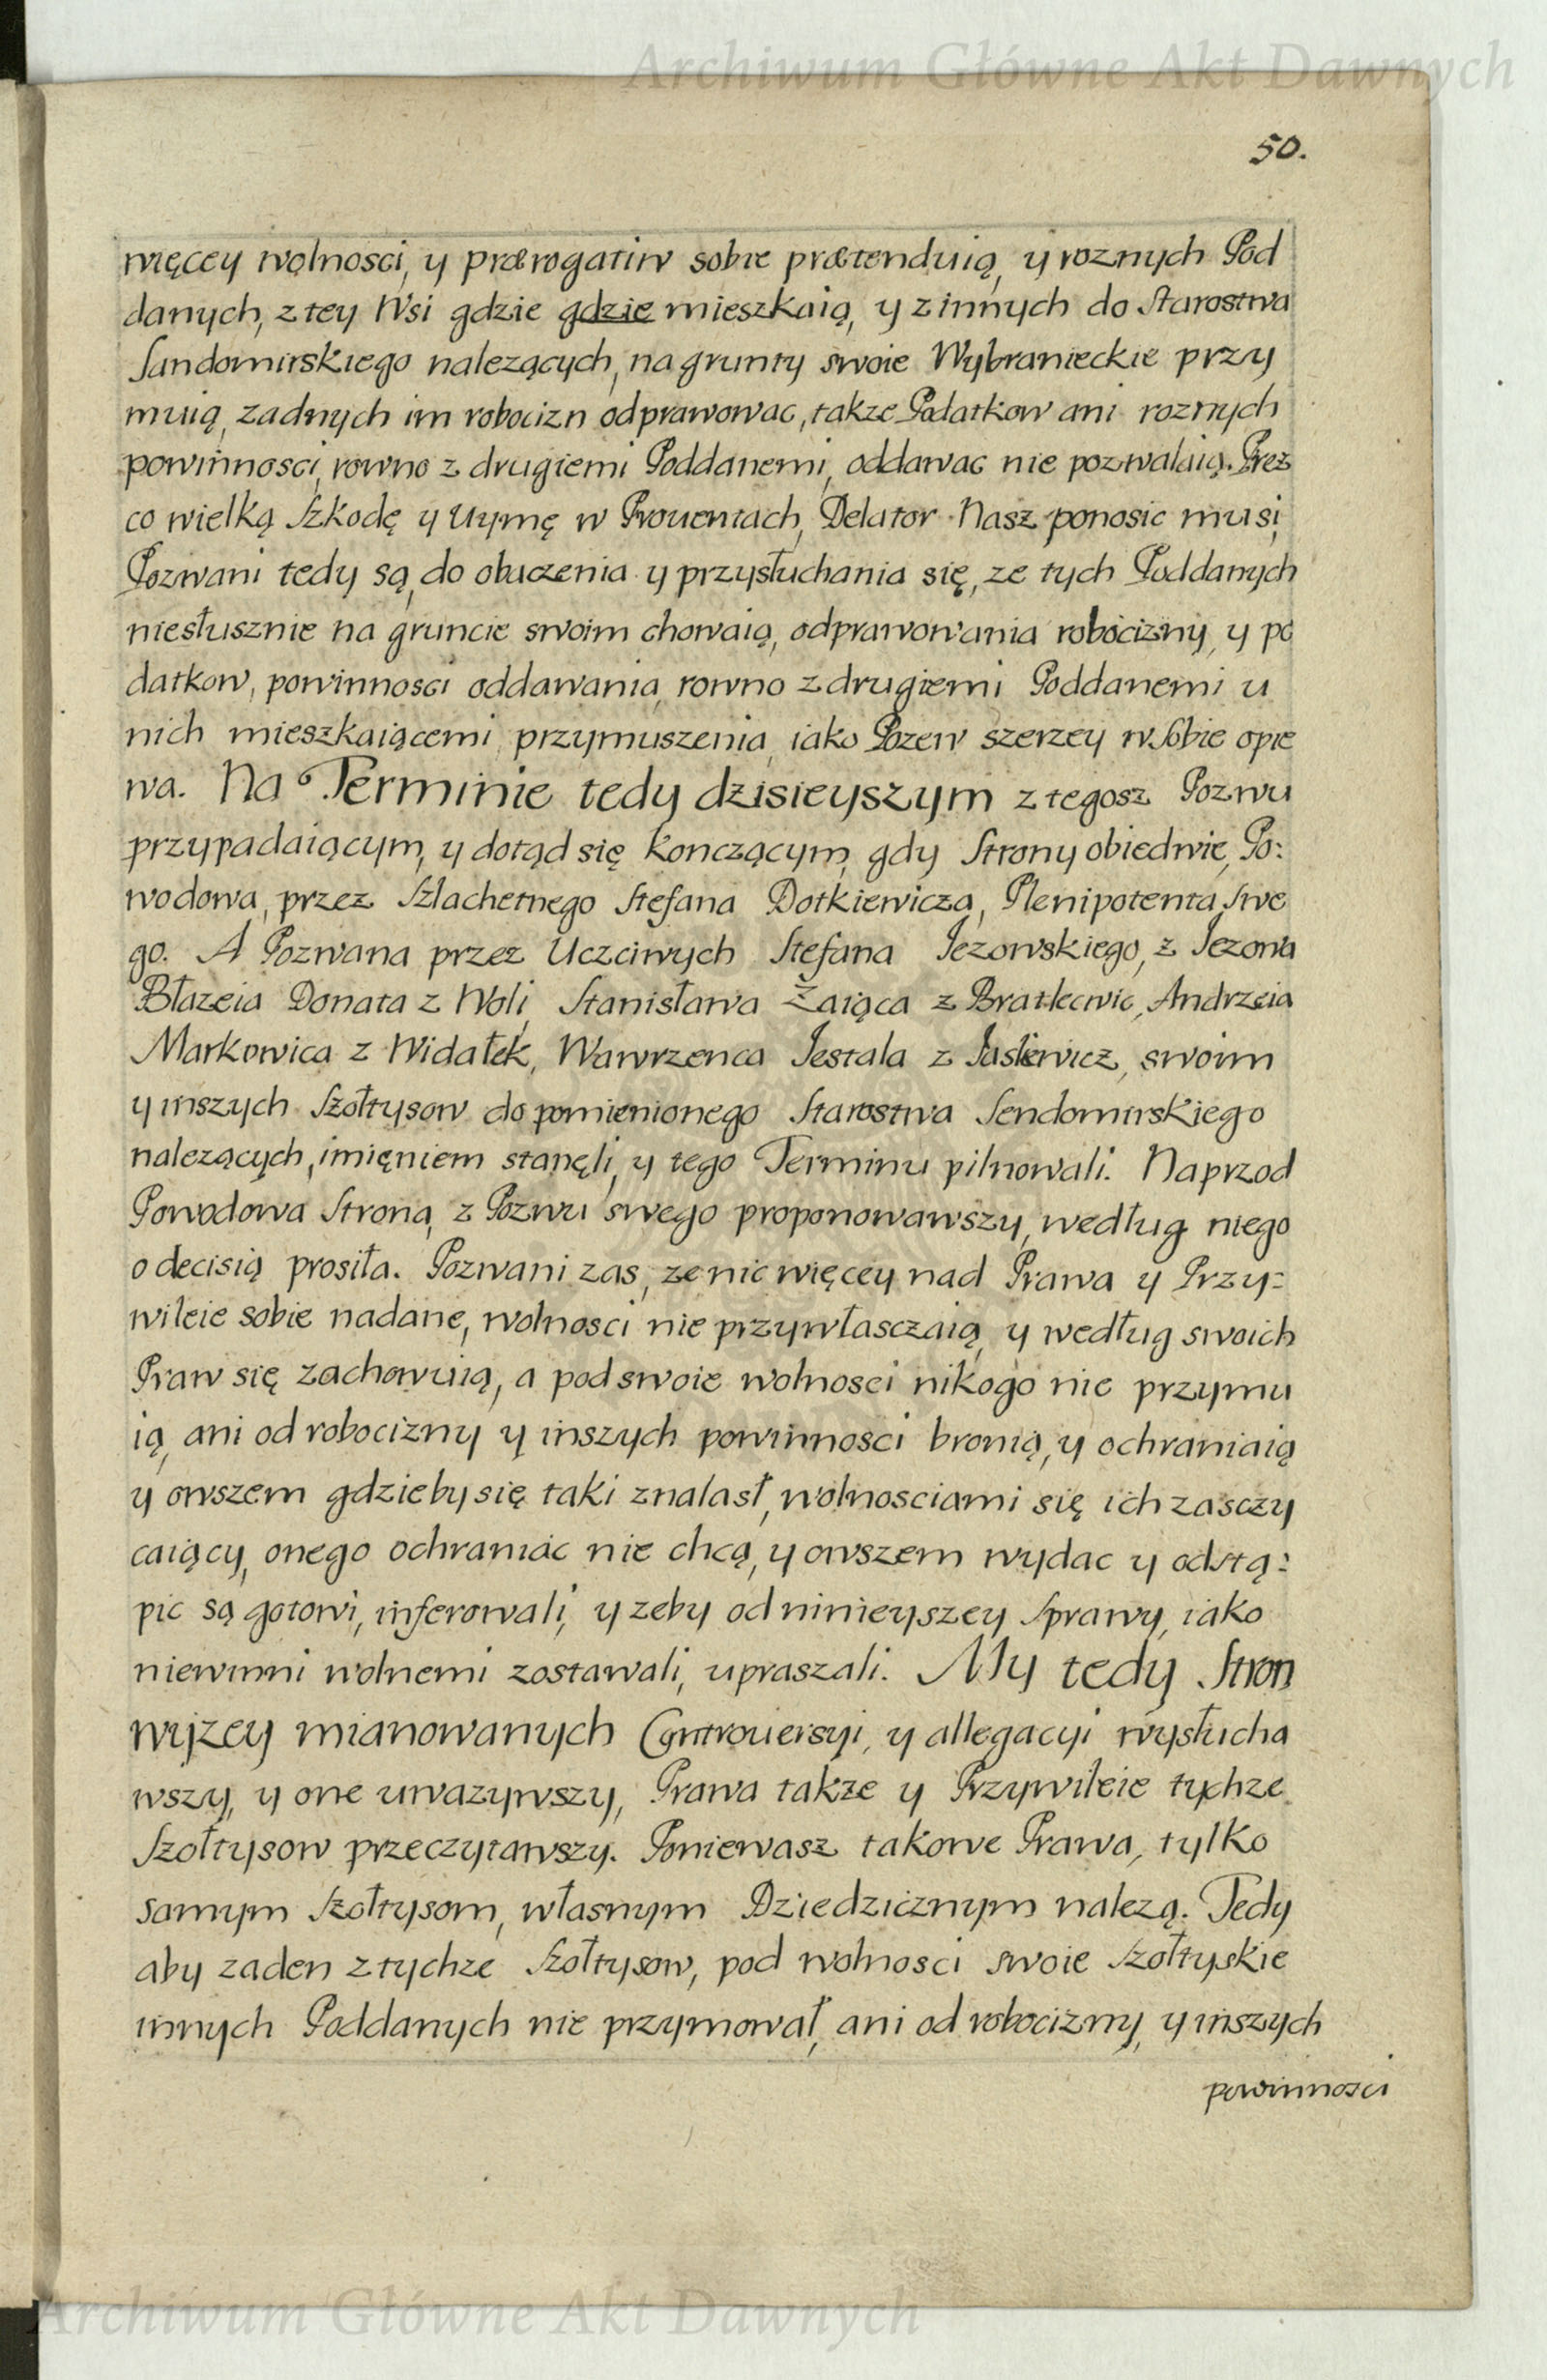 Archiwum Główne Akt Dawnych
50.
więcey wolnosci, y prærogatiw sobie prætenduią, y roznych Pod
danych, z tey Wsi gdzie gdzie mieszkaią, y z innych do Starostwa
Sandomirskiego nalezących, na grunty swoie Wybranieckie przy
muią, zadnych im robocizn odprawowac, takze Podatkow ani roznych
powinnosci, rowno z drugiemi Poddanemi, oddawac nie pozwalaią. Prez
co wielką Szkodę y Uymę w Prouentach, Delator Nasz ponosic musi,
Pozwani tedy są, do obaczenia y przysłuchania się, ze tych Poddanych
niesłusznie na gruncie swoim chowaią, odprawowania robocizny, y po
datkow, powinnosci oddawania, rowno z drugiemi Poddanemi u
nich mieszkaiącemi, przymuszenia, iako Pozew szerzey w Sobie opie
wa. Na Terminie tedy dzisieyszym z tegosz Pozwu
przypadaiącym, y dotąd się konczącym, gdy Strony obiedwie, Po:
wodowa, przez Szlachetnego Stefana Dotkiewicza, Plenipotenta swe
go. A Pozwana przez Uczciwych Stefana Jezowskiego, z Jezowa
Błazeia Donata z Woli, Stanisława Zaiąca z Bratkowic, Andrzeia
Markowica z Widałek, Wawrzenca Jestala z Jaslewicz, swoim
y inszych Szołtysow do pomienionego Starostwa Sendomirskiego
nalezących, imięniem stanęli, y tego Terminu pilnowali. Naprzod
Powodowa Strona, z Pozwu swego proponowawszy, według niego
o decisią prosiła. Pozwani zas, ze nic więcey nad Prawa y Przy:
wileie sobie nadane, wolnosci nie przywłasczaią, y według swoich
Praw się zachowuią, a pod swoie wolnosci nikogo nie przymu
ią, ani od robocizny y inszych powinnosci bronią, y ochraniaią
y owszem gdzieby się taki znalasł, wolnosciami się ich zasczy
caiący, onego ochraniac nie chcą, y owszem wydac y odstą:
pic są gotowi, inferowali, y zeby od ninieyszey Sprawy, iako
niewinni wolnemi zostawali, upraszali. My tedy Stron
wyzey mianowanych Controuersyi, y allegacyi wysłucha
wszy, y one uwazywszy, Prawa takze y Przywileie tychze
Szołtysow przeczytawszy. Poniewasz takowe Prawa, tylko
samym Szołtysom, własnym Dziedzicznym nalezą. Tedy
aby zaden z tychze Szołtysow, pod wolnosci swoie Szołtyskie
innych Poddanych nie przymował, ani od robocizny, y inszych
powinnosci
Archiwum Główne Akt Dawnych